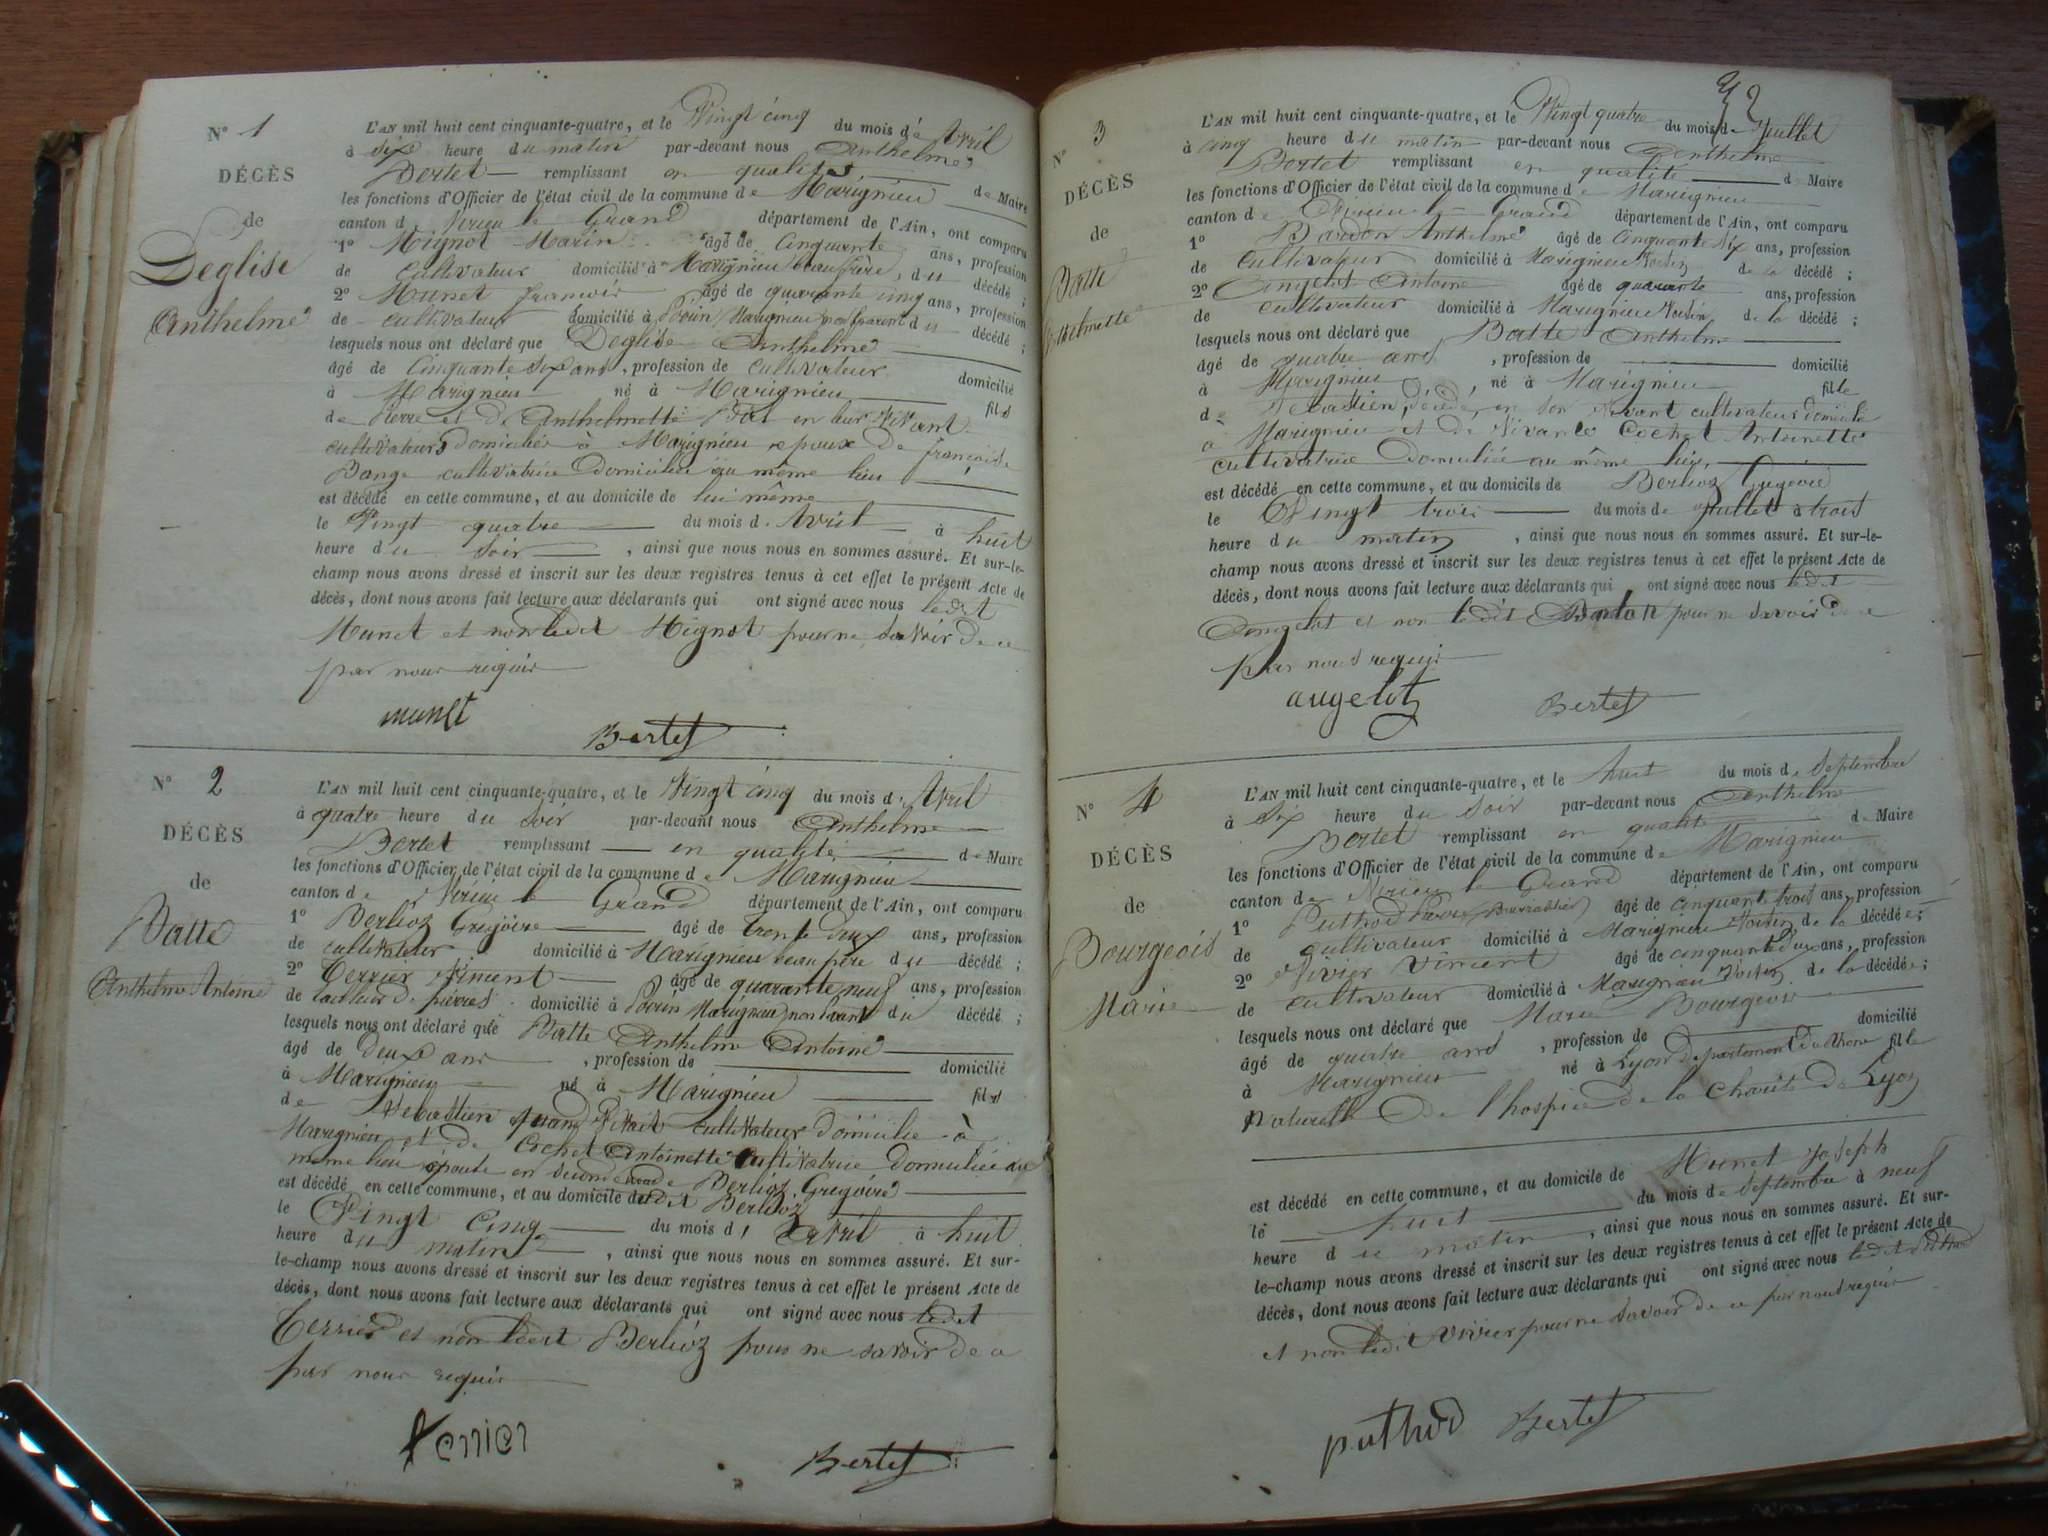 N° 1
DÉCÈS
de
Deglise
Anthelme
L'AN mil huit cent cinquante-quatre, et le Vingt cinq du mois d' Avril
à six heure du matin par-devant nous Anthelme
Bertet remplissant en qualité de Maire
les fonctions d'Officier de l'état civil de la commune de Marignieu
canton d Virieu le Grand département de l'Ain, ont comparu
1° Mignot Marin âgé de Cinquante ans, profession
de Cultivateur domicilié à Marignieu beau frère, du décédé ;
2° Munet françois âgé de quarante cinq ans, profession
de cultivateur domicilié à Poirin Marignieu non parent du décédé ;
lesquels nous ont déclaré que Deglise Anthelme
âgé de Cinquante six ans, profession de cultivateur domicilié
à Marignieu né à Marignieu fils
de Pierre et de Anthelmette en leur Vivant
cultivateurs domiciliés à Marignieu epoux De françoise
Bange cultivatrice Domiciliée au même lieu
est décédé en cette commune, et au domicile de lui même
le Vingt quatre du mois d' Avril à huit
heure du soir, ainsi que nous nous en sommes assuré. Et sur-le-
champ nous avons dressé et inscrit sur les deux registres tenus à cet effet le présent Acte de
décès, dont nous avons fait lecture aux déclarants qui ont signé avec nous ledit
Munet et non ledit Mignot pour ne savoir De ce
par nous requis
munet
Bertet
N° 2
DÉCÈS
de
Batte
Anthelme Antoine
L'AN mil huit cent cinquante-quatre, et le Vingt cinq du mois d' Avril
à quatre heure du soir par-devant nous Anthelme
Bertet remplissant en qualité de Maire
les fonctions d'Officier de l'état civil de la commune de Marignieu
canton de Virieu le Grand département de l'Ain, ont comparu
1° Berlioz Gregoire âgé de trente deux ans, profession
de cultivateur domicilié à Marignieu beau père du décédé ;
2° Terrier Vincent âgé de quarante neuf ans, profession
de tailleur de pierres domicilié à Poirin Marignieu non parent du décédé ;
lesquels nous ont déclaré que Batte Anthelme Antoine
âgé de Deux ans, profession de domicilié
à Marignieu né à Marignieu fils
de Sebastien quand Vivait cultivateur domicilié à
Marignieu et de Cochet Antoinette cultivatrice domiciliée au
même lieu épouse en seconde de Berlioz Gregoire
est décédé en cette commune, et au domicile dudit Berlioz
le Vingt Cinq du mois d' Avril à huit
heure du matin, ainsi que nous nous en sommes assuré. Et sur-
le-champ nous avons dressé et inscrit sur les deux registres tenus à cet effet le présent Acte de
décès, dont nous avons fait lecture aux déclarants qui ont signé avec nous ledit
Terrier et non ledit Berlioz pour ne savoir de ce
par nous requis
terrier
Bertet
32
N° 3
DÉCÈS
de
Batte
Anthelmette
L'AN mil huit cent cinquante-quatre, et le Vingt quatre du mois de Juillet
à cinq heure du matin par-devant nous Anthelme
Bertet remplissant en qualité de Maire
les fonctions d'Officier de l'état civil de la commune de Marignieu
canton de Virieu le Grand département de l'Ain, ont comparu
1° Bardon Anthelme âgé de cinquante six ans, profession
de cultivateur domicilié à Marignieu Voisin de la décédé ;
2° Angelot Antoine âgé de quarante ans, profession
de cultivateur domicilié à Marignieu Voisin de la décédé ;
lesquels nous ont déclaré que Batte Anthelm
âgé de quatre ans, profession de domicilié
à Marignieu, né à Marignieu fille
de Sebastien, décédé, en son Vivant cultivateur domicilié
à Marignieu et de Vivante Cochet Antoinette
cultivatrice Domiciliée au même lieu
est décédé en cette commune, et au domicile de Berlioz Gregoire
le Vingt trois du mois de Juillet à trois
heure du matin, ainsi que nous nous en sommes assuré. Et sur-le-
champ nous avons dressé et inscrit sur les deux registres tenus à cet effet le présent Acte de
décès, dont nous avons fait lecture aux déclarants qui ont signé avec nous ledit
Angelot et non ledit Bardon pour ne savoir de ce
par nous requis
angelot
Bertet
N° 4
DÉCÈS
de
Bourgeois
Marie
L'AN mil huit cent cinquante-quatre, et le huit du mois de Septembre
à six heure du soir par-devant nous Anthelme
Bertet remplissant en qualité de Maire
les fonctions d'Officier de l'état civil de la commune de Marignieu
canton de Virieu le Grand département de l'Ain, ont comparu
1° Puthod Pierre âgé de cinquante trois ans, profession
de cultivateur domicilié à Marignieu Voisin de la décédée ;
2° Vivier Vincent âgé de cinquante deux ans, profession
de cultivateur domicilié à Marignieu Voisin de la décédée ;
lesquels nous ont déclaré que Marie Bourgeois
âgé de quatre ans, profession de domicilié
à Marignieu né à Lyon département du Rhone fille
Naturelle De l'hospice de la Charité de Lyon
est décédé en cette commune, et au domicile de Munet Joseph
le huit du mois de Septembre à neuf
heure du matin, ainsi que nous nous en sommes assuré. Et sur-
le-champ nous avons dressé et inscrit sur les deux registres tenus à cet effet le présent Acte de
décès, dont nous avons fait lecture aux déclarants qui ont signé avec nous ledit Puthod
et non ledit Vivier pour ne savoir de ce par nous requis
puthod Bertet